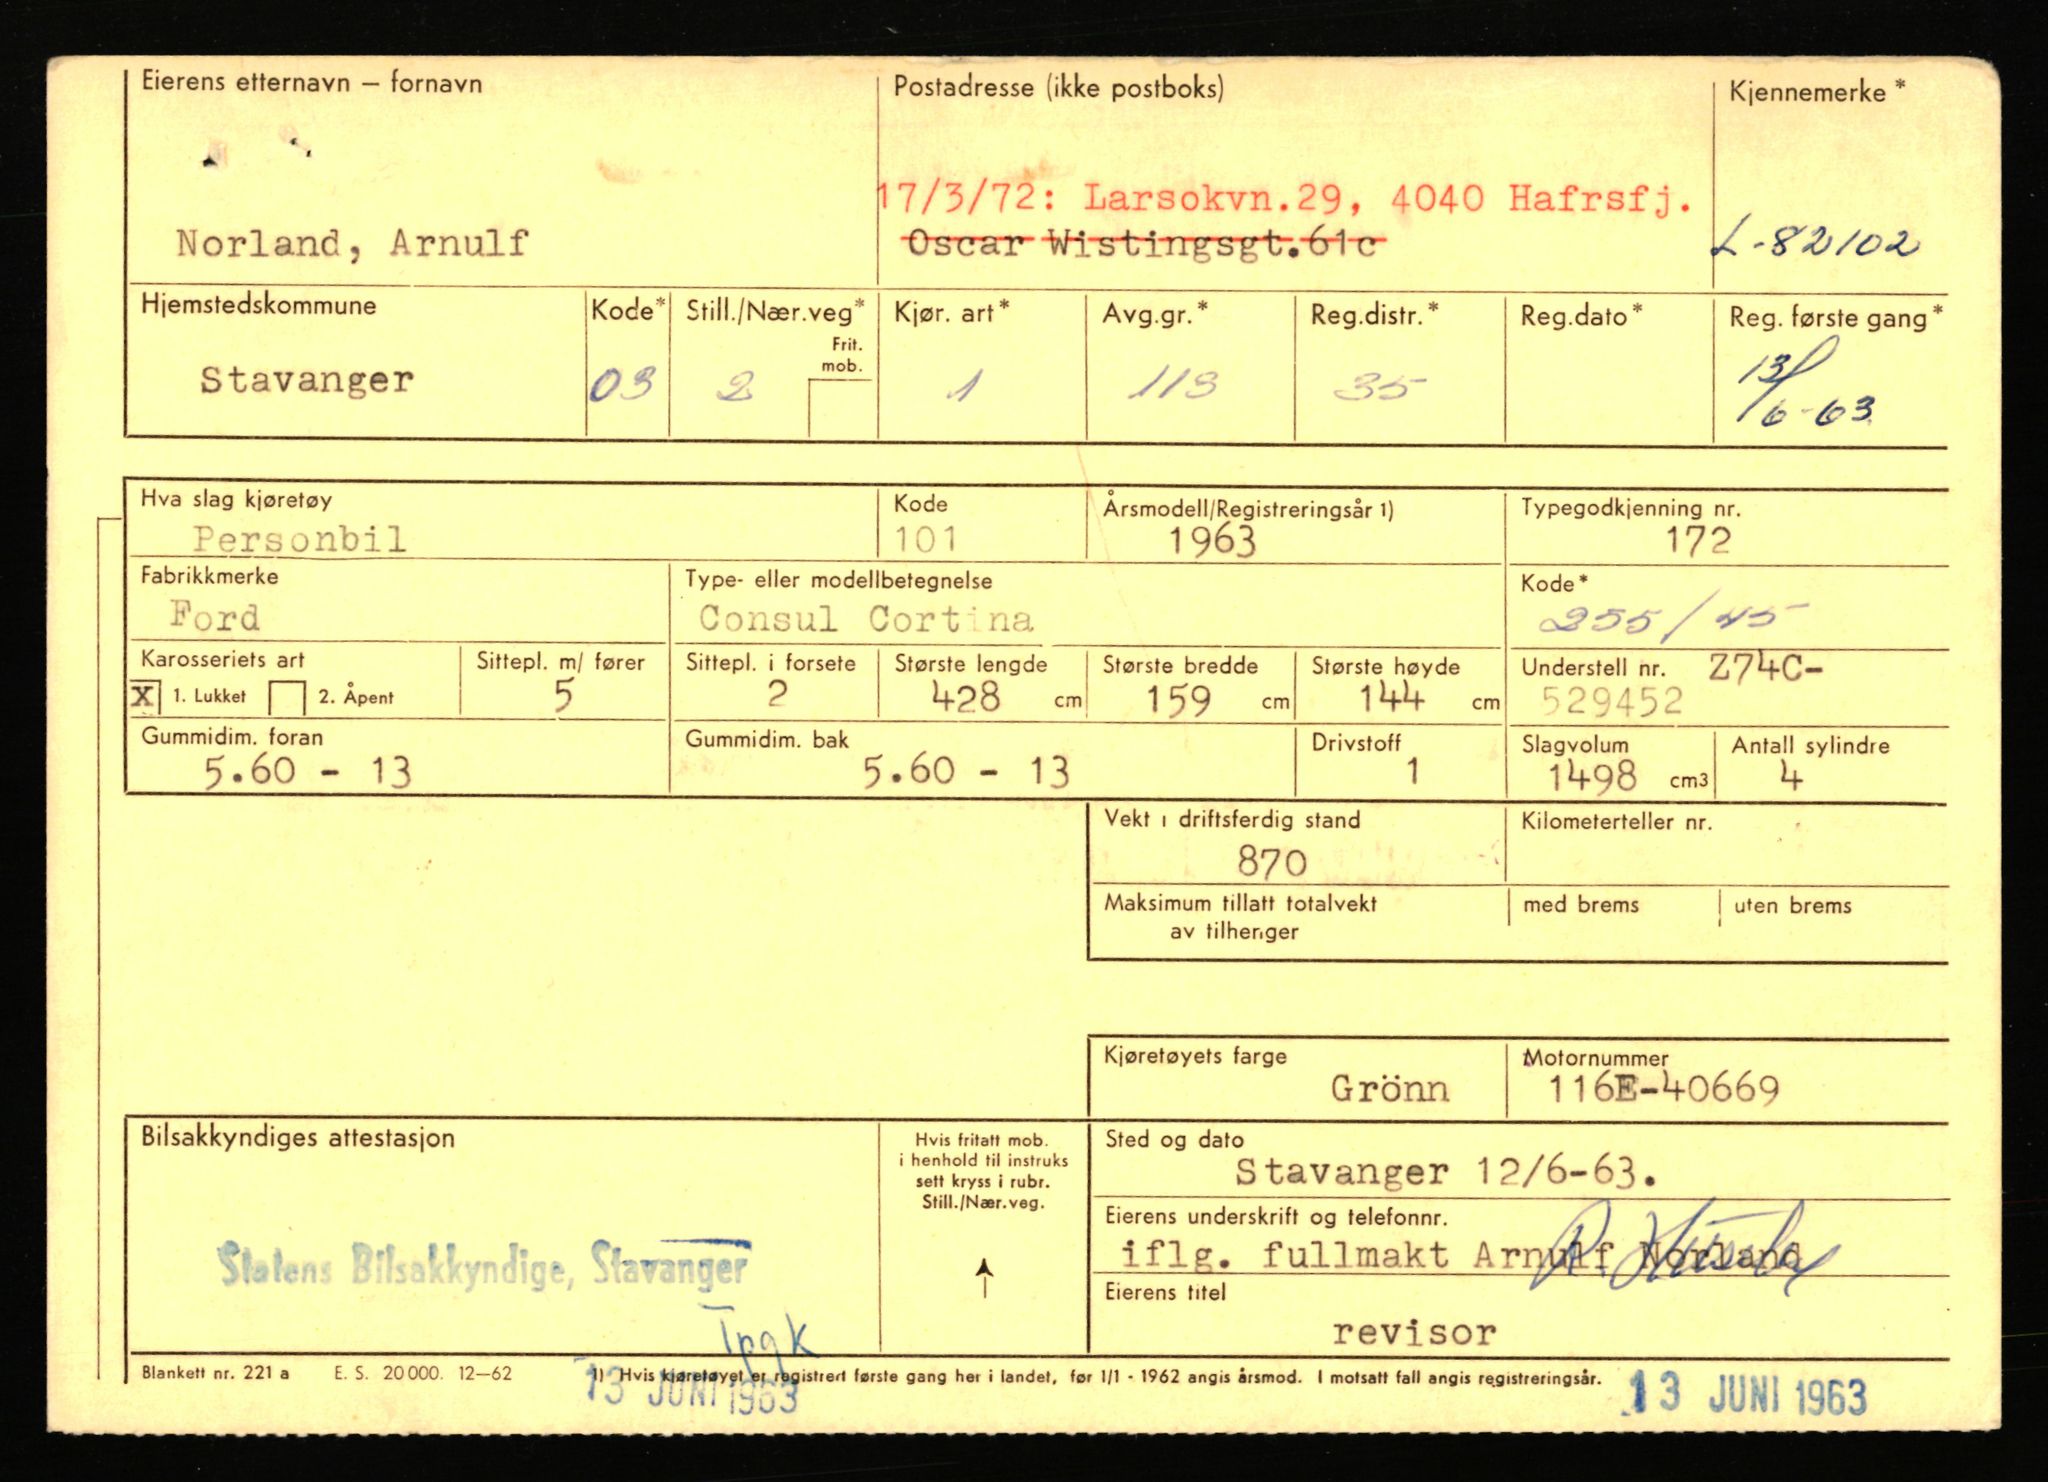 Eierens etternavn – fornavn
Postadresse (ikke postboks)
Kjennemerke *
17/3/72: Larsokvn.29, 4040 Hafrsfj.
Norland, Arnulf
Oscar Wistingsgt.61c
L-82102
Hjemstedskommune
Kode*
Still./Nær.veg*
Frit. mob.
Kjør. art*
Avg.gr.*
Reg.distr.*
Reg.dato*
Reg. første gang*
Stavanger
03
2
1
113
35
13/6-63
Hva slag kjøretøy
Kode
Årsmodell/Registreringsår 1)
Typegodkjenning nr.
Personbil
101
1963
172
Fabrikkmerke
Type- eller modellbetegnelse
Kode*
Ford
Consul Cortina
255/45
Karosseriets art
Sittepl. m/ fører
Sittepl. i forsete
Største lengde
Største bredde
Største høyde
Understell nr. Z74C-
X 1. Lukket 2. Åpent
5
2
428 cm
159 cm
144 cm
529452
Gummidim. foran
Gummidim. bak
Drivstoff
Slagvolum
Antall sylindre
5.60 - 13
5.60 - 13
1
1498 cm3
4
Vekt i driftsferdig stand
Kilometerteller nr.
870
Maksimum tillatt totalvekt
av tilhenger
med brems
uten brems
Kjøretøyets farge
Motornummer
Grönn
116E-40669
Bilsakkyndiges attestasjon
Hvis fritatt mob.
i henhold til instruks
sett kryss i rubr.
Still./Nær.veg.
Sted og dato
Stavanger 12/6-63.
Eierens underskrift og telefonnr.
iflg. fullmakt Arnulf Norland
Statens Bilsakkyndige, Stavanger
Eierens titel
revisor
Tpgk
Blankett nr. 221 a E. S. 20 000. 12–62
1) Hvis kjøretøyet er registrert første gang her i landet, før 1/1 - 1962 angis årsmod. I motsatt fall angis registreringsår.
13 JUNI 1963
13 JUNI 1963